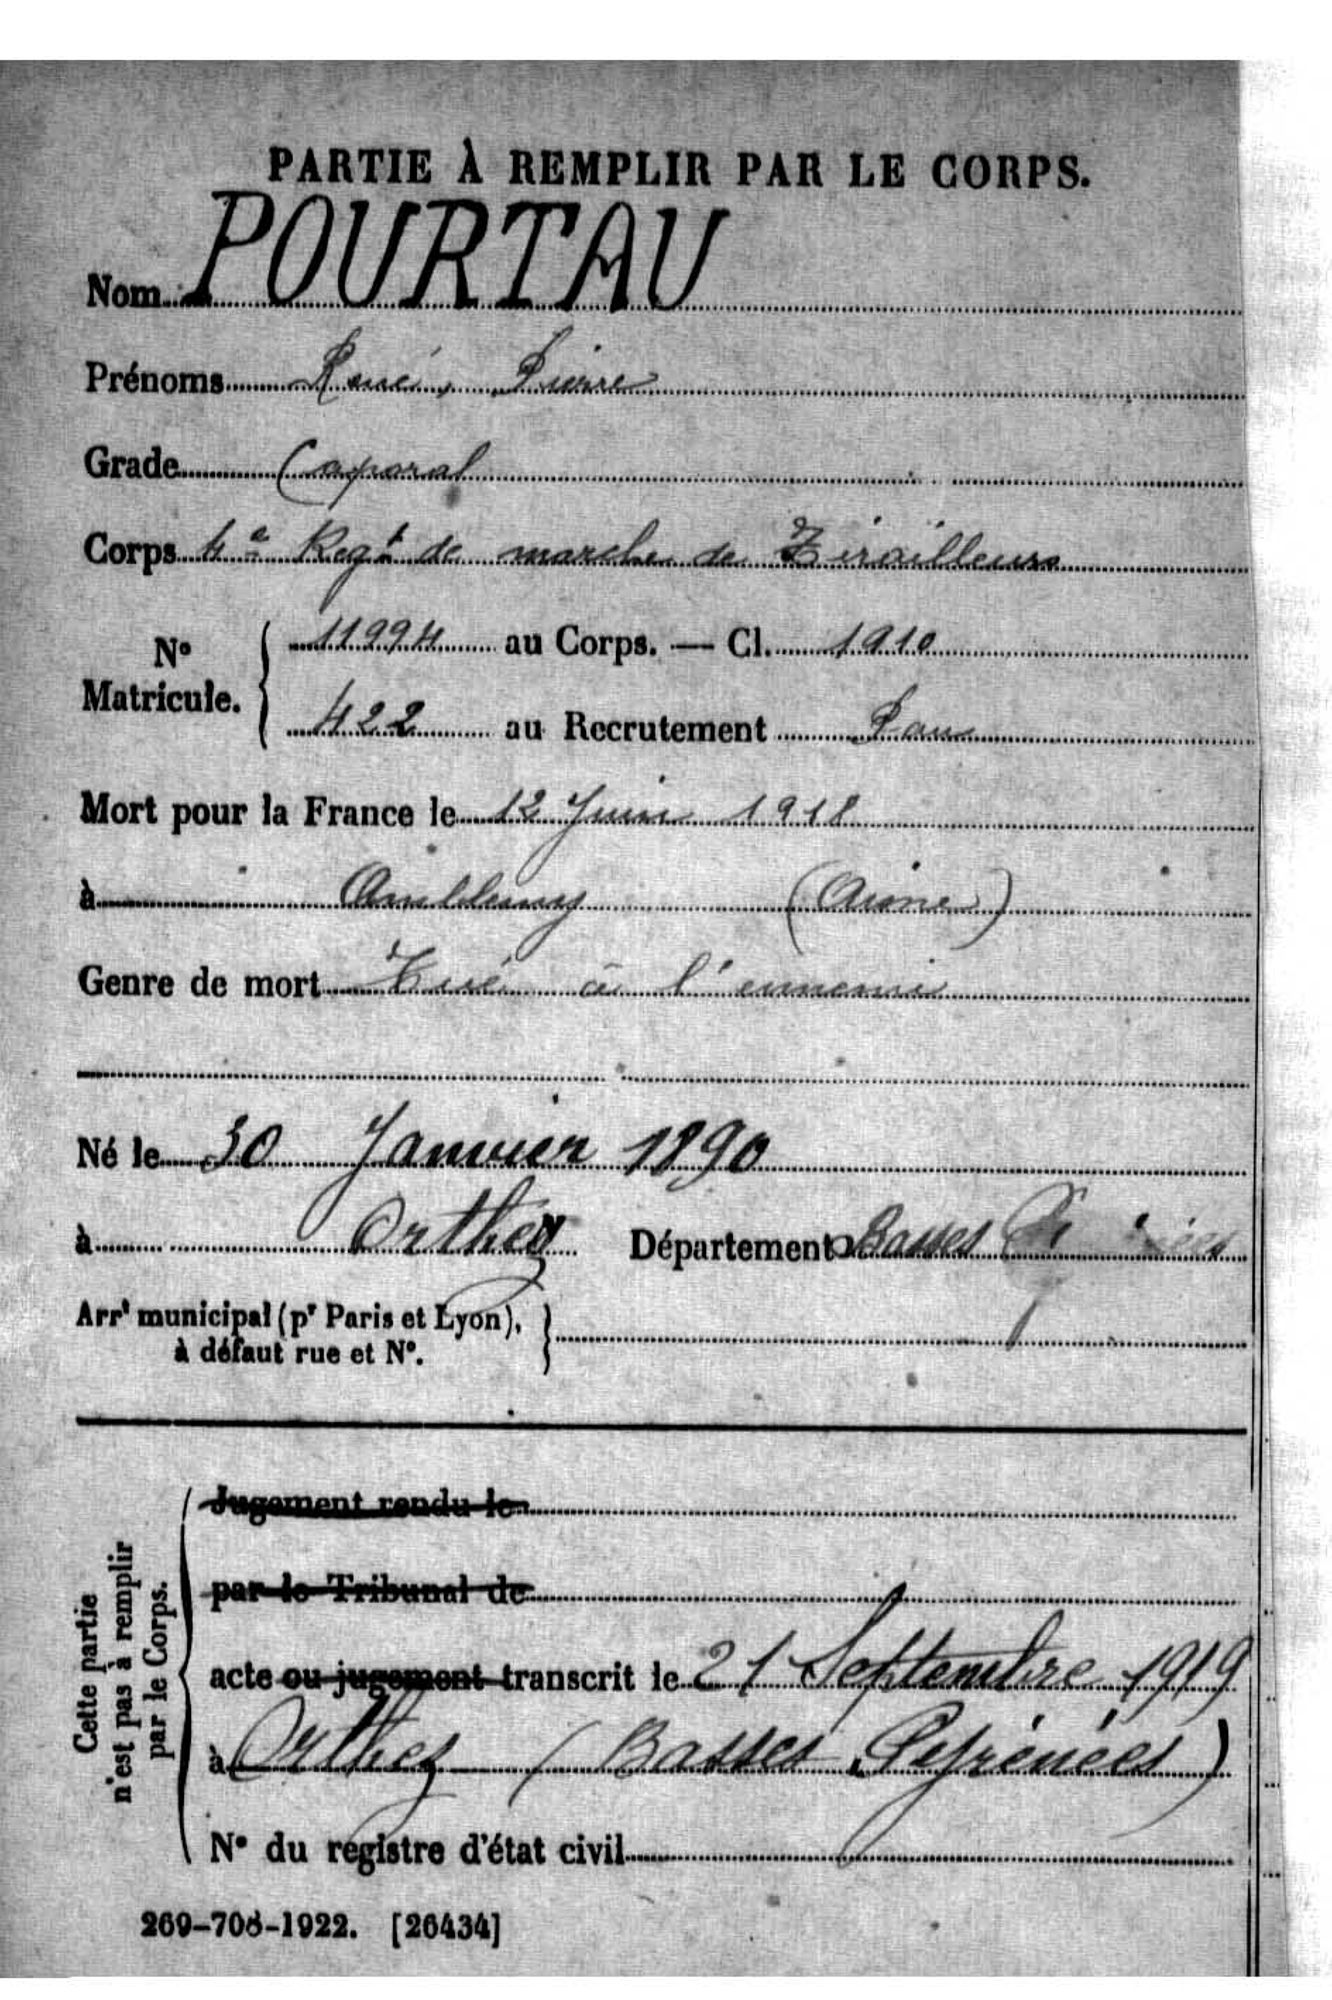 PARTIE À REMPLIR PAR LE CORPS.
Nom POURTAU
Prénoms René, Pierre
Grade Caporal
Corps 4e Regt de marche de Tirailleurs
No Matricule. { 11994 au Corps. — Cl. 1910
422 au Recrutement Pau
Mort pour la France le 12 Juin 1918
à Ambleny (Aisne)
Genre de mort Tué à l'ennemi
Né le 30 Janvier 1890
à Orthez Département Basses Pyrénées
Arrt municipal (pr Paris et Lyon),
à défaut rue et No.
Cette partie
n'est pas à remplir
par le Corps.
Jugement rendu le
par le Tribunal de
acte ou jugement transcrit le 21 Septembre 1919
à Orthez (Basses Pyrénées)
No du registre d'état civil
269-708-1922. [26434]